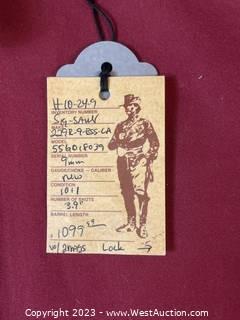 H10-24-9
INVENTORY NUMBER
Sig-SAUER
229R-9-BSS-CA
MODEL
55G018039
SERIAL NUMBER
9mm
GAUGE/CHOKE — CALIBER
new
CONDITION
10+1
NUMBER OF SHOTS
3.9"
BARREL LENGTH
$1099.99
w/ 2mags Lock
Copyright 2023 - www.WestAuction.com